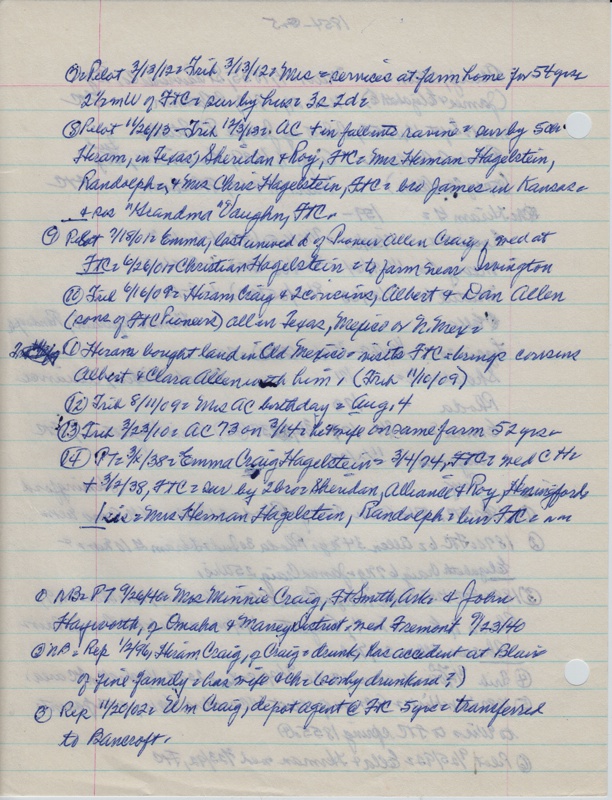 ⑦ Pilot 3/13/12 = Trib 3/13/12 = Mrs = services at farm home for 54 yrs
2½ m W of FtC = sur by hus = 3s 2d =
⑧ Pilot 11/26/13 - Trib = AC + in fall into ravine = sur by
Hiram, in Texas, Sheridan & Roy, FtC = Mrs Herman Hagelstein,
Randolph =, & Mrs Chris Hagelstein, FtC = bro James in Kansas =
+ sis "Grandma" Vaughn, FtC.
⑨ Pilot = Emma, last unwed d of Pioneer Allen Craig, wed at
FtC = Christian Hagelstein = to farm near Irvington
Trib 6/16/09 = Hiram Craig & 2 cousins, Albert & Dan Allen
(sons of FtC Pioneer) all in Texas, Mexico or N. Mex =
① Hiram bought land in Old Mexico = visits FtC = brings cousins
Albert & Clara Allen with him, (Trib 11/10/09)
⑫ Trib 8/11/09 = Mrs AC birthday = Aug. 4
⑬ Trib 3/23/10 = AC 73 on 3/14 = he & wife on same farm 52 yrs =
⑭ PT = = Emma Craig Hagelstein = 3/4/74, FtC = wed C H =
+ 3/2/38, FtC = sur by 2 bro = Sheridan, Alliance & Roy, Hemingford
1 sis = Mrs Herman Hagelstein, Randolph = bur FtC =
① NB = PT 9/26/40 = Mrs Minnie Craig, Ft Smith, Ark = & John
Hayworth, of Omaha & District = wed Fremont 9/23/40
② NB = Rep 1/3/96, Hiram Craig, of Craig = drunk, has accident at Blair =
of fine family = has wife & ch = (only drunkard?)
③ Rep 11/20/02 = Wm Craig, depot agent @ FtC 5 yrs = transferred
to Bancroft.